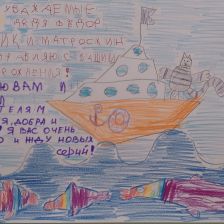 УВАЖАЕМЫЕ
ДЯДЯ ФЁДОР
ИК И МАТРОСКИН
РАВЛЯЮ С ВАШИМ
РОЖДЕНИЯ!
ЮВАМ И
М
ТЕЛЯМ
Я, ДОБРА И
! Я ВАС ОЧЕНЬ
Ю И ЖДУ НОВЫХ
СЕРИЙ!